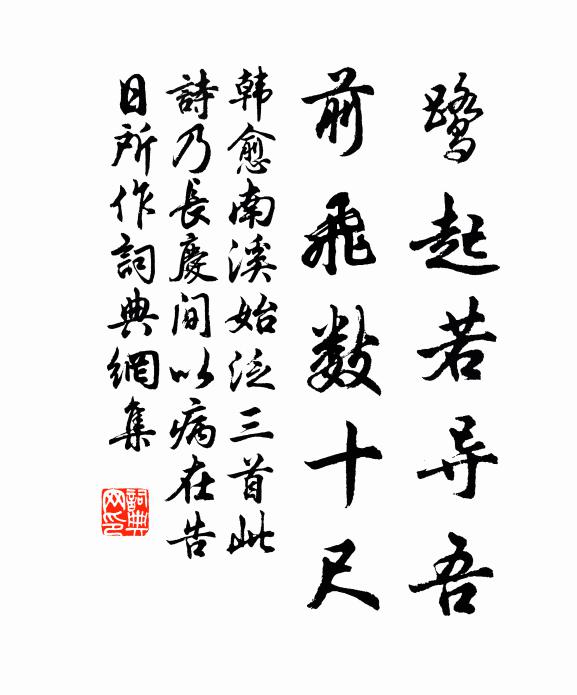 鹭起若导吾
前飛数十尺
韩愈南溪始泛三首此
詩乃長慶间以病在告
日所作詞典網集
詞典
网印